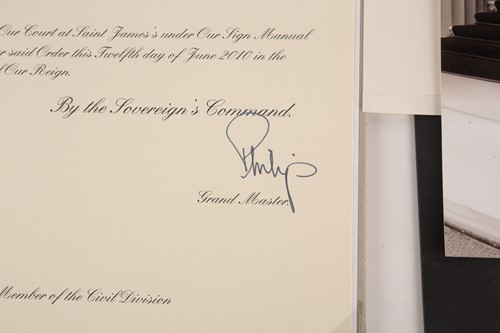 Our Court at Saint James's under Our Sign Manual
said Order this Twelfth day of June 2010 in the
Our Reign.
By the Sovereign's Command.
Philip
Grand Master.
Member of the Civil Division